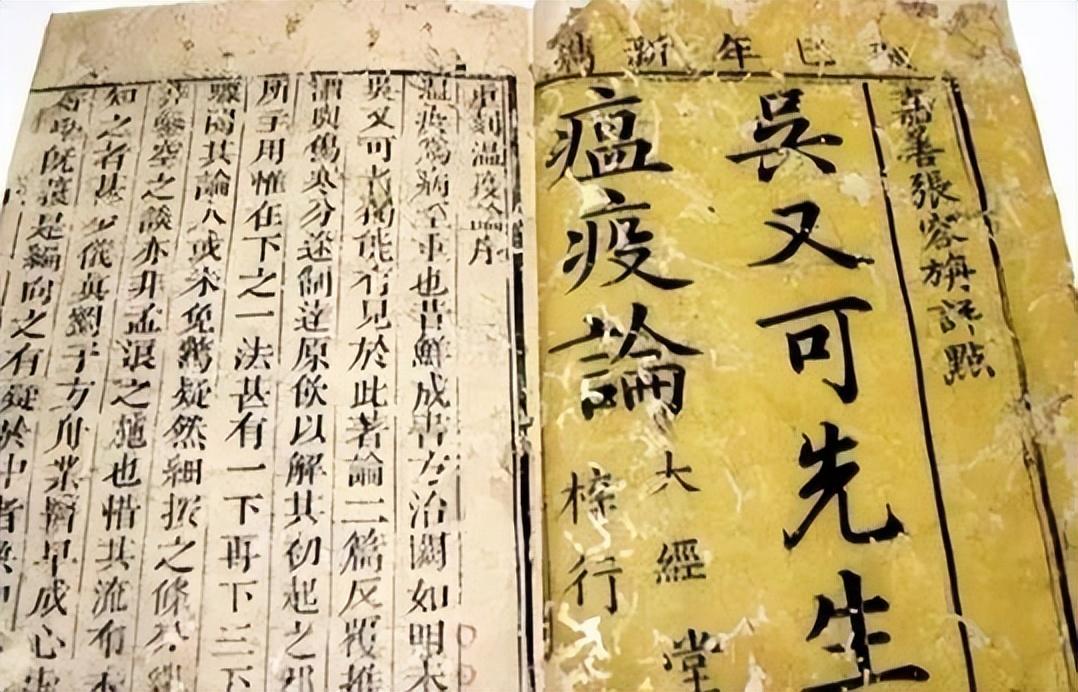 巳年新鐫
嘉善張容旃評點
吳又可先生
瘟疫論
大經堂
梓行
重刻溫疫論序
溫疫爲病至重也昔鮮成書方治闕如明末
吳又可獨能有見於此著論二篇反覆推
與傷寒分途制達原飲以解其初起之邪
所予用惟在下之一法甚有一下再下三下
驟閱其論人或未免驚疑然細按之條分縷
非鑿空之談亦非孟浪之施也惜其流布未
知之者甚少儀真劉子方舟業醫早成心
既讀是編向之有疑於中者無